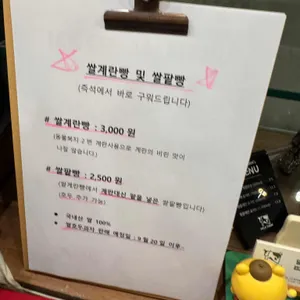 쌀계란빵 및 쌀팥빵
(즉석에서 바로 구워드립니다)
# 쌀계란빵 : 3,000 원
(동물복지 2 번 계란사용으로 계란의 비린 맛이
나질 않습니다)
# 쌀팥빵 : 2,500 원
(쌀계란빵에서 계란대신 팥을 넣은 쌀팥빵입니다)
(호두 추가 가능)
● 국내산 쌀 100%
● 쌀호두과자 판매 예정일 : 9 월 20 일 이후
MENU